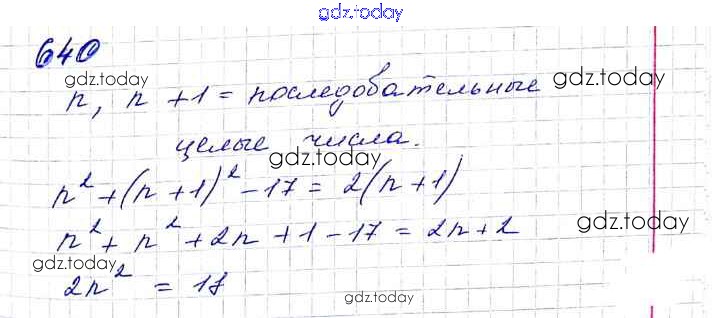 gdz.today
640
gdz.today
n, n + 1 = последовательные gdz.today
целые числа.
gdz.today
n² + (n + 1)² - 17 = 2(n + 1)
n² + n² + 2n + 1 - 17 = 2n + 2 gdz.today
gdz.today
2n² = 18
gdz.today